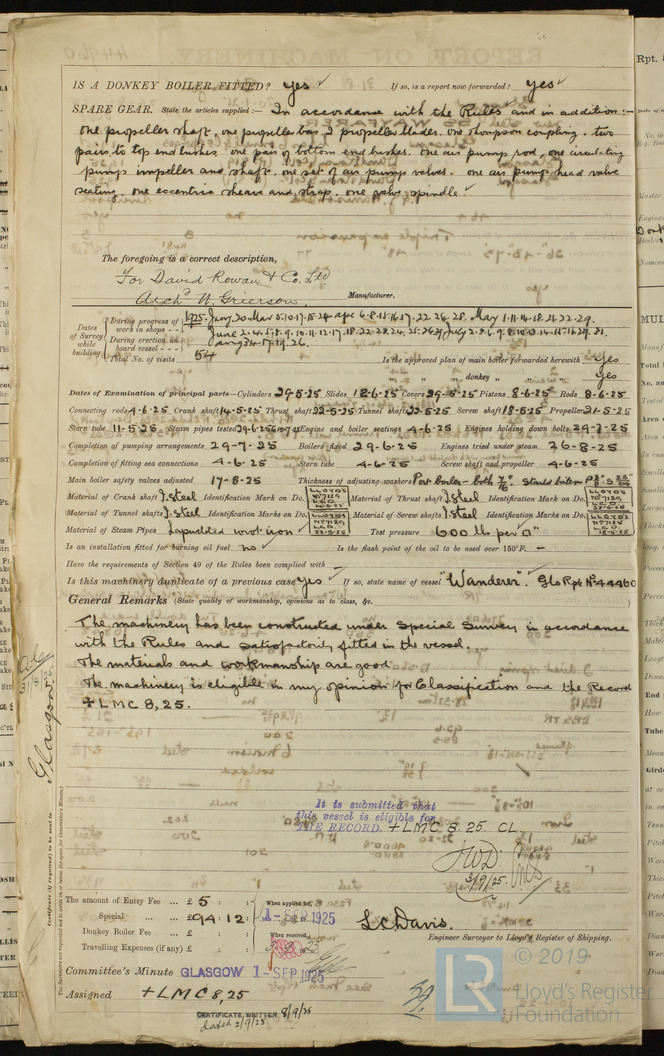 IS A DONKEY BOILER FITTED? Yes ✓ If so, is a report now forwarded? Yes ✓
SPARE GEAR. State the articles supplied:— In accordance with the Rules and in addition:—
One propeller shaft, one propeller boss, 2 propeller blades, one Thompson coupling, two
pairs to top end bushes, one pair of bottom end bushes. One air pump rod, one circulating
pump impeller and shaft, one set of air pump valves. One air pump head valve
seating, one eccentric sheave and strap, one valve spindle.
The foregoing is a correct description,
For David Rowan & Co. Ltd
Archd W. Grierson Manufacturer.
Dates of Survey while building
During progress of work in shops - - 1925. Jany. 20. Mar. 5.10.17.18.24 apr 6.8.15.16.17.22.24.28. May 1.11.14.18.21.22.29.
During erection on board vessel - - - June 2.4.5.8.9.10.11.12.17.18.22.23.24.25.26.29 July 2.3.6.9.8.10.13.14.15.16.29.31.
Aug 3.4.17.19.26.
Total No. of visits 54 Is the approved plan of main boiler forwarded herewith Yes
" " " donkey " " " Yes
Dates of Examination of principal parts—Cylinders 29-5-25 Slides 12-6-25 Covers 29-5-25 Pistons 8-6-25 Rods 8-6-25
Connecting rods 4-6-25 Crank shaft 14-5-25 Thrust shaft 22-5-25 Tunnel shafts 22-5-25 Screw shaft 18-5-25 Propeller 21-5-25
Stern tube 11-5-25 Steam pipes tested 29-6-25 Engine and boiler seatings 4-6-25 Engines holding down bolts 29-7-25
Completion of pumping arrangements 29-7-25 Boilers fixed 29-6-25 Engines tried under steam 26-8-25
Completion of fitting sea connections 4-6-25 Stern tube 4-6-25 Screw shaft and propeller 4-6-25
Main boiler safety valves adjusted 17-8-25 Thickness of adjusting washers Port boiler - both Starbd boiler
Material of Crank shaft I. steel Identification Mark on Do. LLOYD'S Material of Thrust shaft I. steel Identification Mark on Do. LLOYD'S
Material of Tunnel shafts I. steel Identification Marks on Do. LLOYD'S Material of Screw shafts I. steel Identification Marks on Do. LLOYD'S
Material of Steam Pipes Lapwelded wrot iron ✓ Test pressure 600 lbs per □"
Is an installation fitted for burning oil fuel no ✓ Is the flash point of the oil to be used over 150°F. —
Have the requirements of Section 49 of the Rules been complied with —
Is this machinery duplicate of a previous case Yes ✓ If so, state name of vessel "Wanderer". Glo Rpt No 44460
General Remarks (State quality of workmanship, opinions as to class, &c.
The machinery has been constructed under Special Survey in accordance
with the Rules and satisfactorily fitted in the vessel.
The materials and workmanship are good.
The machinery is eligible in my opinion for Classification and the Record
+ LMC 8,25.
Glasgow.
It is submitted that
this vessel is eligible for
THE RECORD. + LMC 8.25. CL.
3/9/25.
Certificate (if required) to be sent to
The amount of Entry Fee ... £ 5 : : When applied for,
Special ... £ 94 : 12 : 1 - SEP 1925
Donkey Boiler Fee ... £ : : When received,
Travelling Expenses (if any) £ : :
L.C. Davis.
Engineer Surveyor to Lloyd's Register of Shipping.
Committee's Minute GLASGOW 1 - SEP 1925
Assigned + LMC 8,25
CERTIFICATE WRITTEN 8/9/25
dated 2/9/25
© 2019
LR Lloyd's Register
Foundation